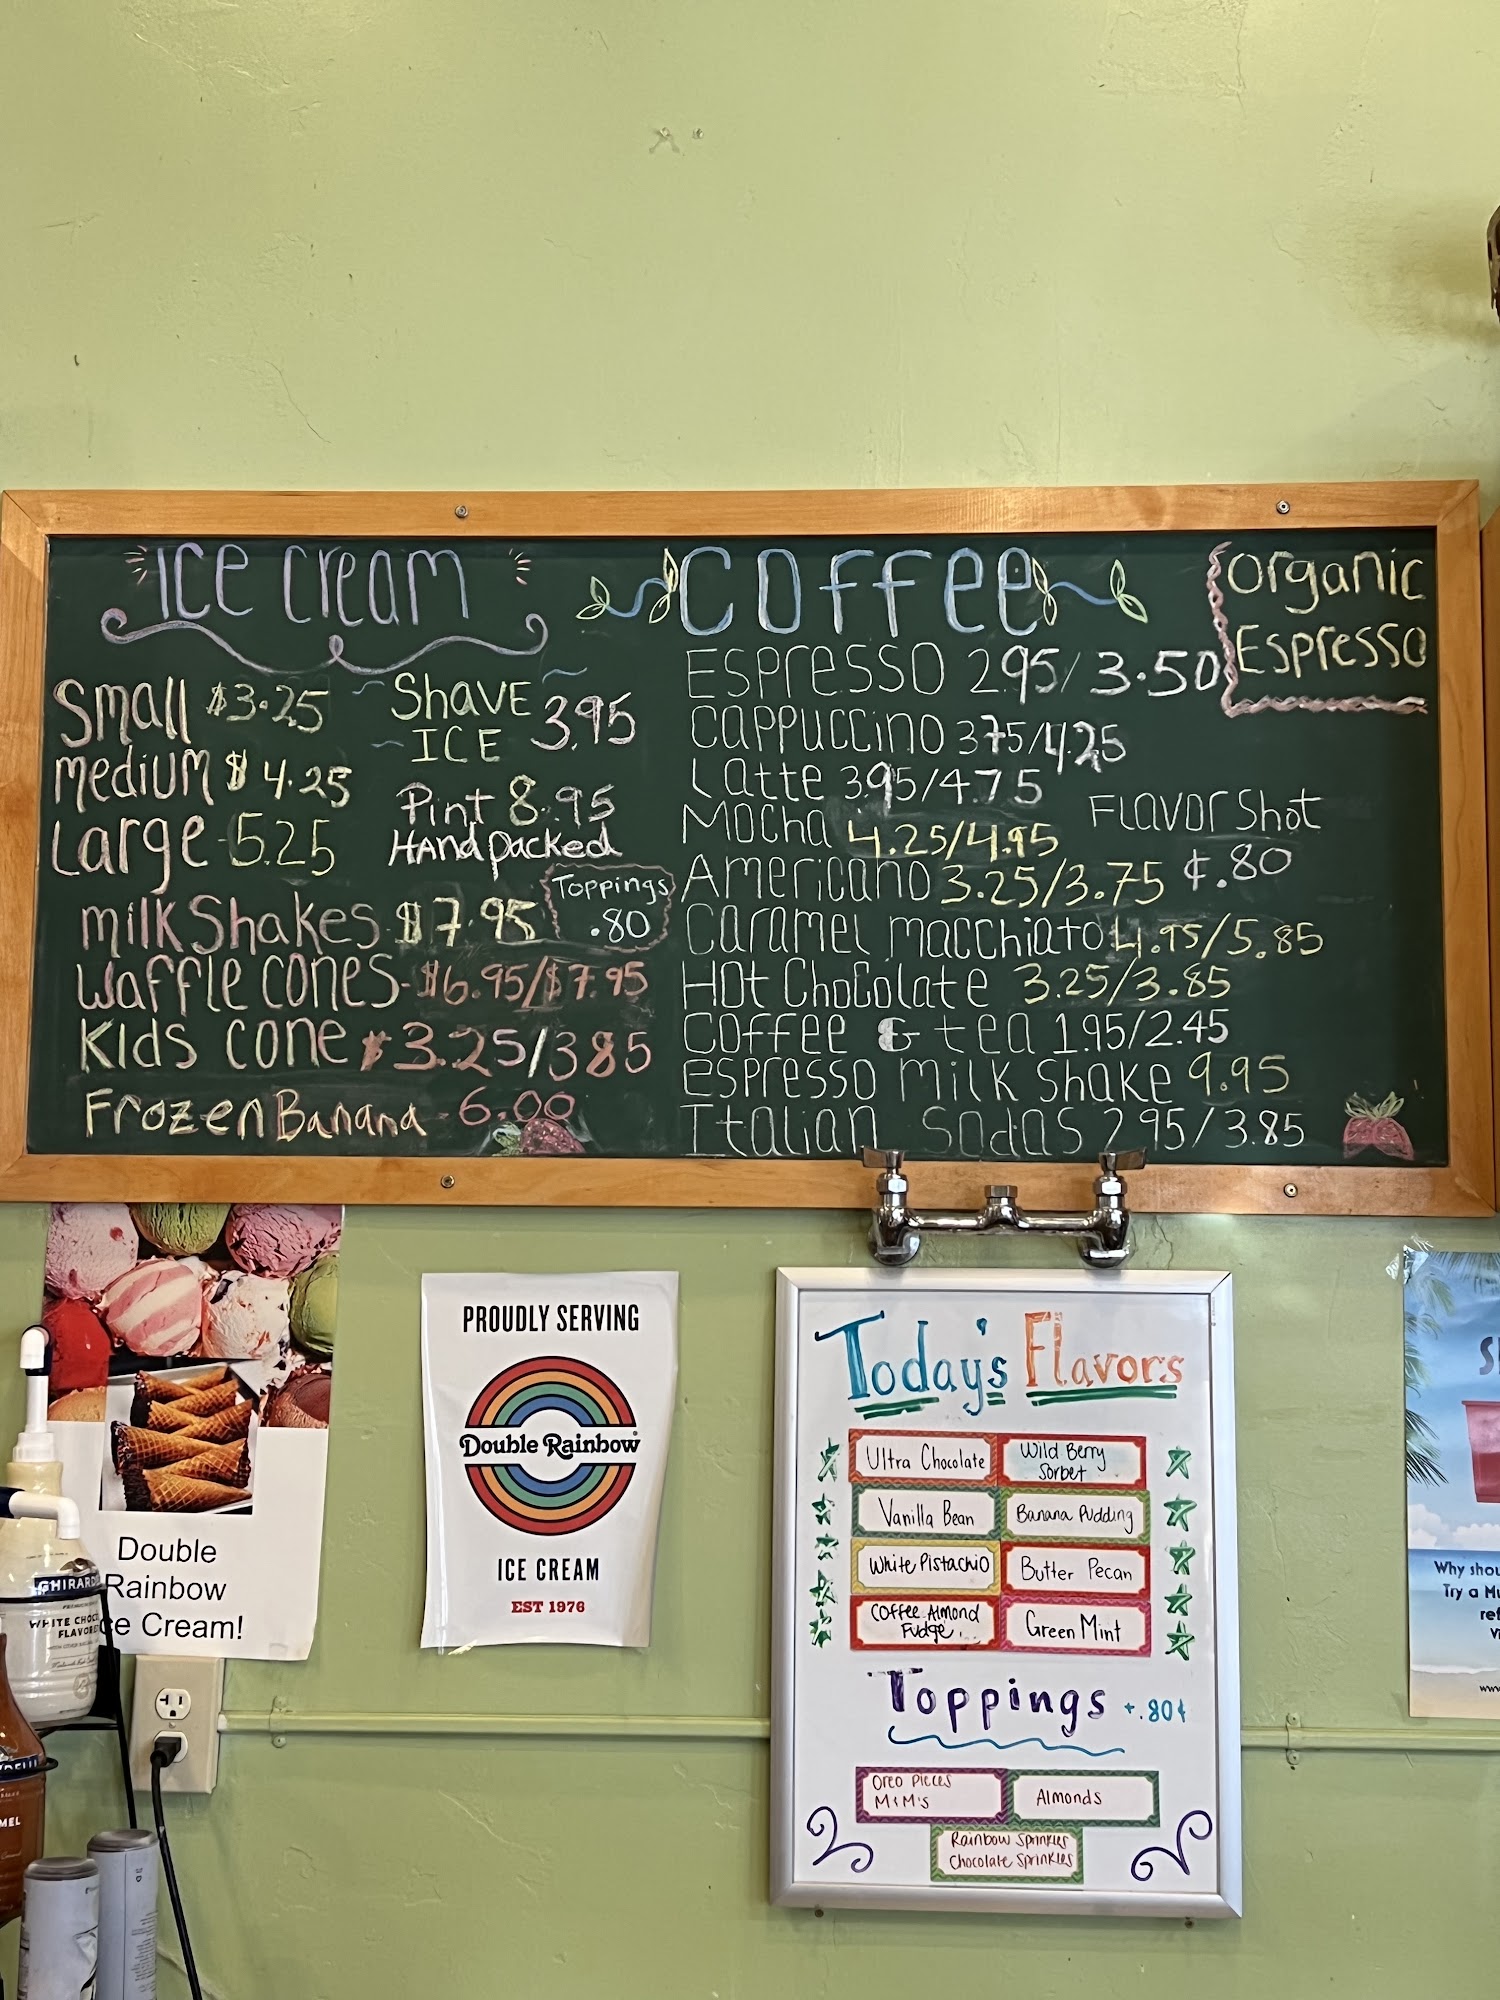 Ice cream
Small $3.25
medium $4.25
Large 5.25
Shave
ICE 3.95
Pint 8.95
Handpacked
Toppings
.80
milkShakes $7.95
waffle cones-$6.95/$7.95
Kids cone $3.25/3.85
Frozen Banana - 6.00
Coffee
Organic
Espresso
Espresso 2.95/3.50
Cappuccino 3.75/4.25
Latte 3.95/4.75
Mocha 4.25/4.95
Americano 3.25/3.75
Flavor Shot
¢.80
Caramel macchiato 4.95/5.85
Hot Chocolate 3.25/3.85
Coffee & tea 1.95/2.45
espresso milk shake 9.95
Italian Sodas 2.95/3.85
Double
Rainbow
ce Cream!
GHIRARD
WHITE CHOC
FLAVORE
MEL
PROUDLY SERVING
Double Rainbow
ICE CREAM
EST 1976
Today's Flavors
Ultra Chocolate
Wild Berry
Sorbet
Vanilla Bean
Banana Pudding
White Pistachio
Butter Pecan
Coffee Almond
Fudge
Green Mint
Toppings +.80¢
Oreo Pieces
M&M's
Almonds
Rainbow Sprinkles
Chocolate Sprinkles
Why shou
Try a Mu
ref
Vi
www